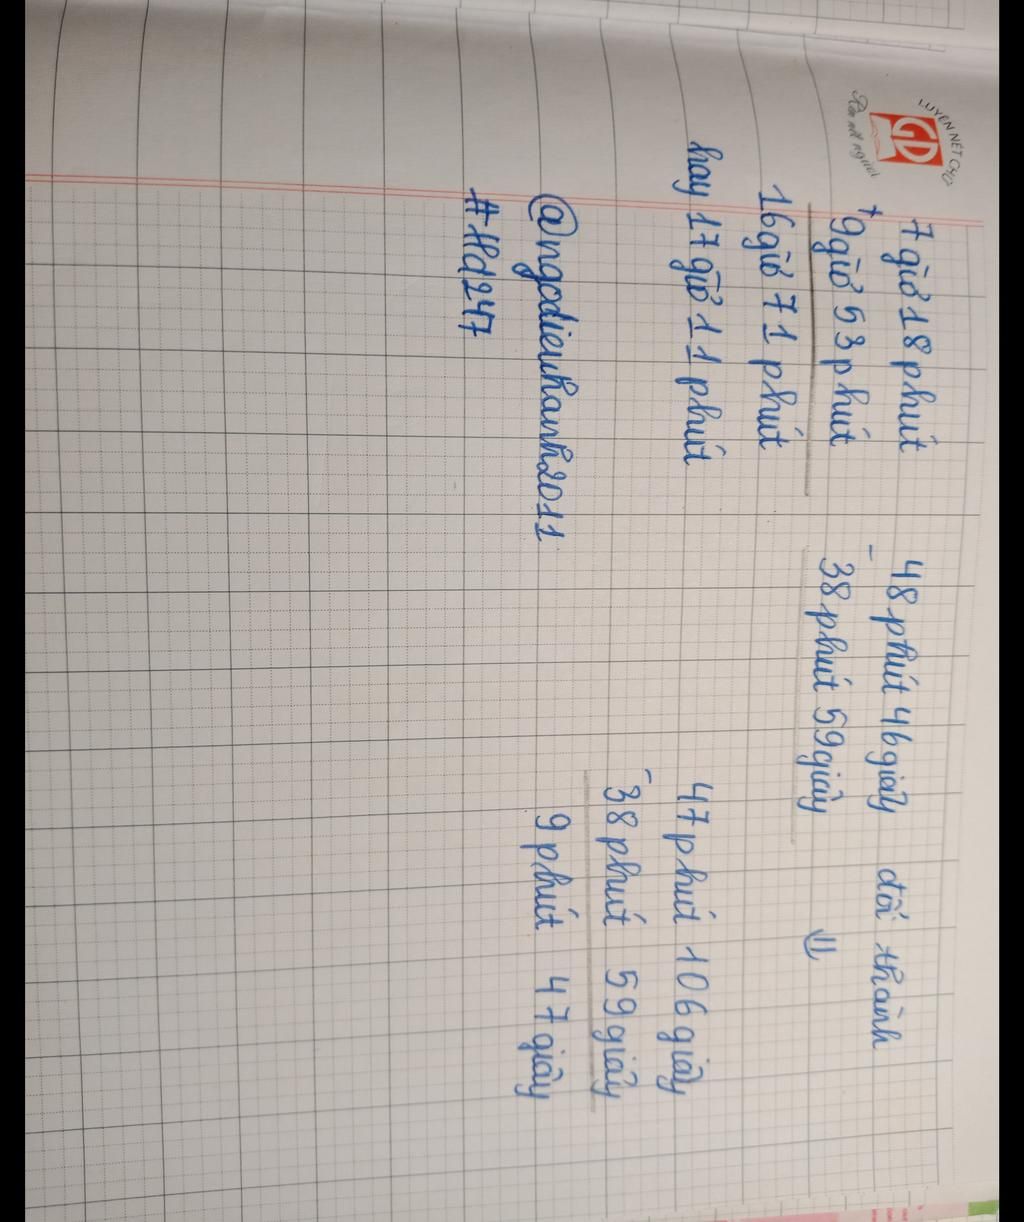 LUYỆN NÉT CHỮ
GD
Rèn nết người
7 giờ 18 phút
+
9 giờ 53 phút
16 giờ 71 phút
hay 17 giờ 11 phút
48 phút 46 giây đổi thành
-
38 phút 59 giây ⇓
47 phút 106 giây
-
38 phút 59 giây
9 phút 47 giây
@ngodieuhanh2011
#Hd247